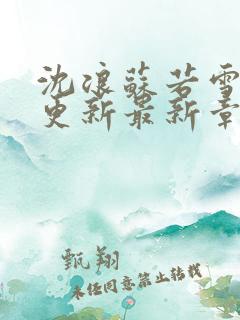 沈浪蘇若雪
更新最新章
甄翔
未经同意禁止转载